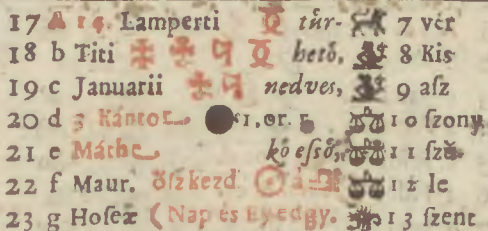 17 A 14 Lamperti tűr- 7 vér
18 b Titi hető, 8 Kis
19 c Januarii nedves, 9 aſz
20 d 3 Kántor 1, or. 10 ſzony
21 e Máthe kő eſső, 11 ſzü-
22 f Maur. őſz kezd. 12 le
23 g Hoſeæ (Nap és Éj edgy. 13 ſzent